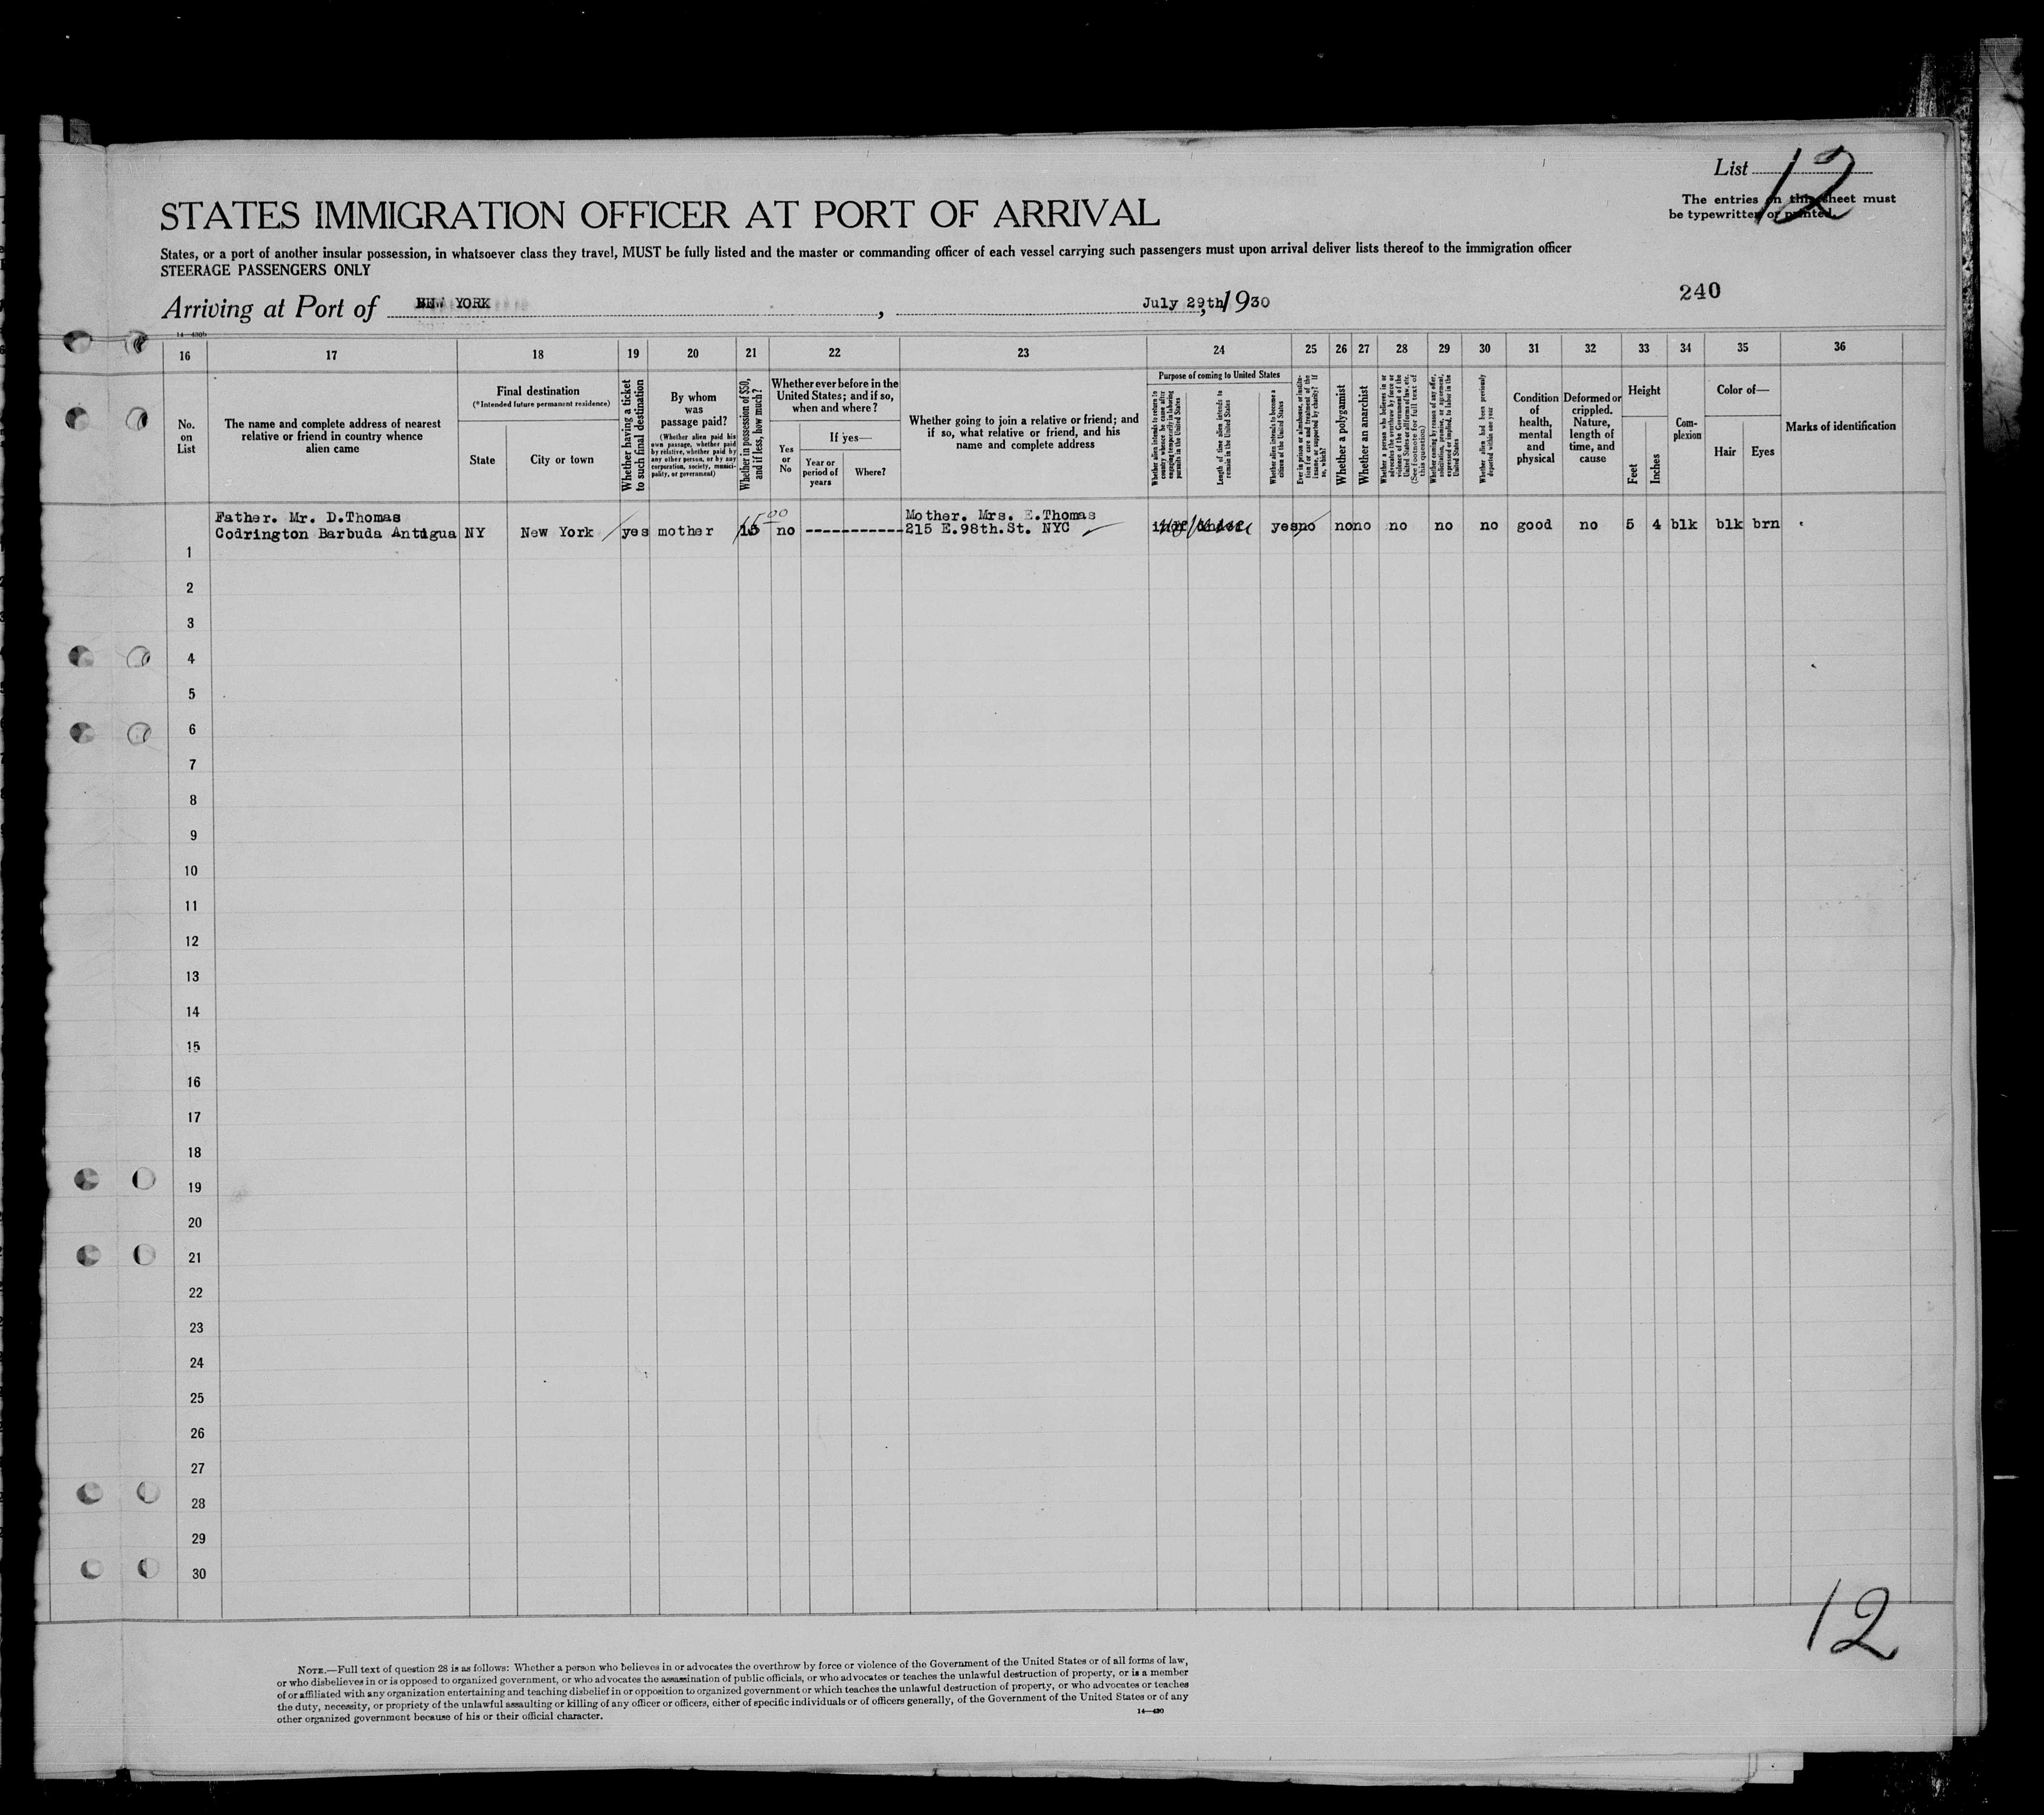 List 12
The entries on this sheet must
be typewritten or printed.
STATES IMMIGRATION OFFICER AT PORT OF ARRIVAL
States, or a port of another insular possession, in whatsoever class they travel, MUST be fully listed and the master or commanding officer of each vessel carrying such passengers must upon arrival deliver lists thereof to the immigration officer
STEERAGE PASSENGERS ONLY
240
Arriving at Port of NEW YORK, July 29th, 1930
14—430b
16 17 18 19 20 21 22 23 24 25 26 27 28 29 30 31 32 33 34 35 36
No.
on
List
The name and complete address of nearest
relative or friend in country whence
alien came
Final destination
(*Intended future permanent residence)
State
City or town
Whether having a ticket
to such final destination
By whom
was
passage paid?
(Whether alien paid his
own passage, whether paid
by relative, whether paid by
any other person, or by any
corporation, society, munici-
pality, or government)
Whether in possession of $50,
and if less, how much?
Whether ever before in the
United States; and if so,
when and where?
Yes
or
No
If yes—
Year or
period of
years
Where?
Whether going to join a relative or friend; and
if so, what relative or friend, and his
name and complete address
Purpose of coming to United States
Whether alien intends to return to
country whence he came after
engaging temporarily in laboring
pursuits in the United States
Length of time alien intends to
remain in the United States
Whether alien intends to become a
citizen of the United States
Ever in prison or almshouse, or institu-
tion for care and treatment of the
insane, or supported by charity? If
so, which?
Whether a polygamist
Whether an anarchist
Whether a person who believes in or
advocates the overthrow by force or
violence of the Government of the
United States or all forms of law, etc.
(See footnote for full text of
this question)
Whether coming by reason of any offer,
solicitation, promise, or agreement,
expressed or implied, to labor in the
United States
Whether alien had been previously
deported within one year
Condition
of
health,
mental
and
physical
Deformed or
crippled.
Nature,
length of
time, and
cause
Height
Feet
Inches
Com-
plexion
Color of—
Hair
Eyes
Marks of identification
Father. Mr. D.Thomas
Codrington Barbuda Antigua NY New York yes mother 15 15 00 no ------------ Mother. Mrs. E.Thomas
215 E.98th.St. NYC
yes no no no no no no good no 5 4 blk blk brn
1
2
3
4
5
6
7
8
9
10
11
12
13
14
15
16
17
18
19
20
21
22
23
24
25
26
27
28
29
30
12
NOTE.—Full text of question 28 is as follows: Whether a person who believes in or advocates the overthrow by force or violence of the Government of the United States or of all forms of law,
or who disbelieves in or is opposed to organized government, or who advocates the assassination of public officials, or who advocates or teaches the unlawful destruction of property, or is a member
of or affiliated with any organization entertaining and teaching disbelief in or opposition to organized government or which teaches the unlawful destruction of property, or who advocates or teaches
the duty, necessity, or propriety of the unlawful assaulting or killing of any officer or officers, either of specific individuals or of officers generally, of the Government of the United States or of any
other organized government because of his or their official character.
14—430